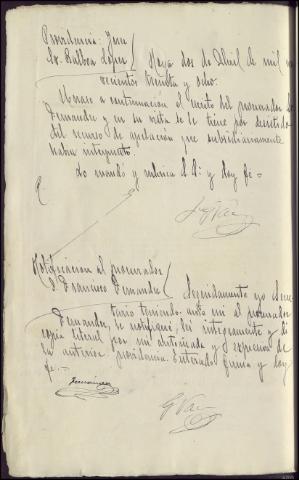 Providencia: Juez
Sr. Balboa Lopez / Noya dos de Abril de mil no
vecientos treinta y ocho.
Unase a continuacion el escrito del procurador Sr.
Fernandez y en su vista se le tiene por desistido
del recurso de apelación que subsidiariamente
habia interpuesto.
Lo mandó y rubrica S. Sª y doy fe.-
Notificacion al procurador
D. Francisco Fernandez / Seguidamente yo Secre
tario teniendo ante mi al procurador
Fernandez, le notifiqué, lei integramente y di
copia literal por mi autorizada y expresiva de
la anterior providencia. Enterado firma y doy
fe.-